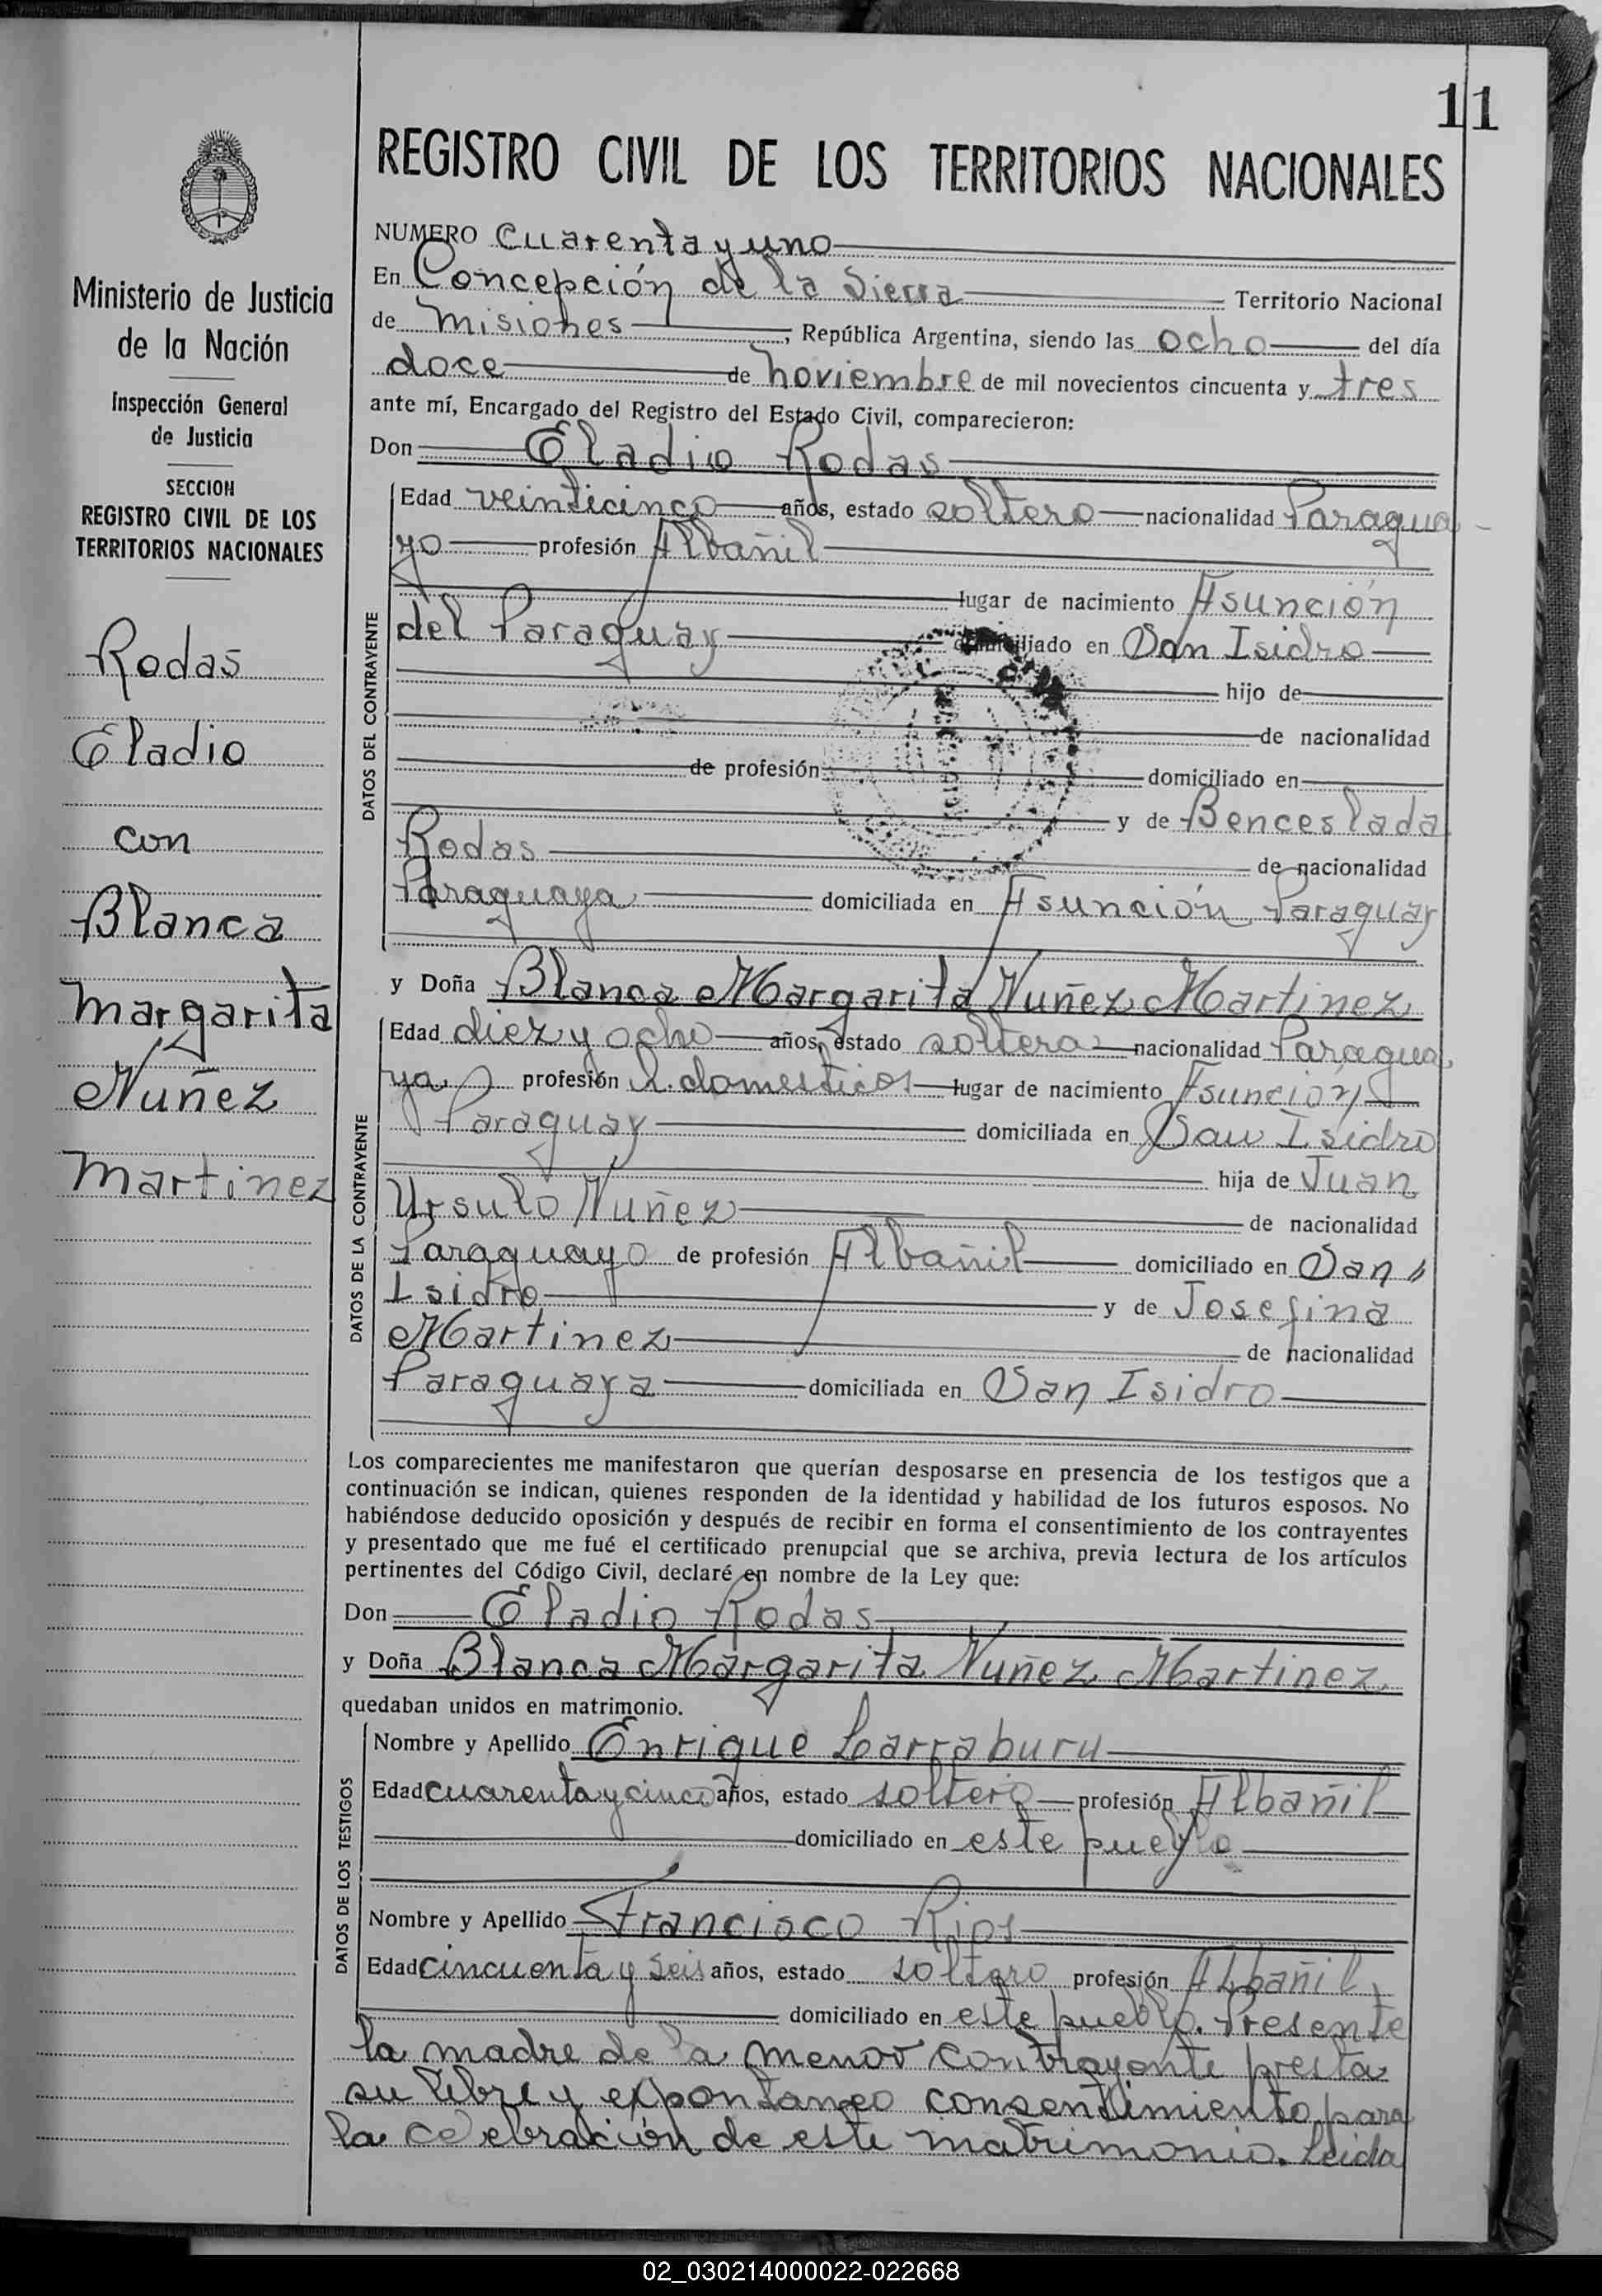 11
REGISTRO CIVIL DE LOS TERRITORIOS NACIONALES
Ministerio de Justicia
de la Nación
Inspección General
de Justicia
SECCION
REGISTRO CIVIL DE LOS
TERRITORIOS NACIONALES
Rodas
Eladio
con
Blanca
Margarita
Nuñez
Martinez
NUMERO Cuarenta y uno
En Concepción de la Sierra Territorio Nacional
de Misiones, República Argentina, siendo las ocho del día
doce de noviembre de mil novecientos cincuenta y tres
ante mí, Encargado del Registro del Estado Civil, comparecieron:
Don Eladio Rodas
DATOS DEL CONTRAYENTE
Edad veinticinco años, estado soltero nacionalidad Paragua-
yo profesión Albañil
lugar de nacimiento Asunción
del Paraguay domiciliado en San Isidro
hijo de
de nacionalidad
de profesión domiciliado en
y de Benceslada
Rodas de nacionalidad
Paraguaya domiciliada en Asunción Paraguay
y Doña Blanca Margarita Nuñez Martinez
DATOS DE LA CONTRAYENTE
Edad diez y ocho años, estado soltera nacionalidad Paragua
ya profesión q. domesticos lugar de nacimiento Asunción
Paraguay domiciliada en San Isidro
hija de Juan
Ursulo Nuñez de nacionalidad
Paraguayo de profesión Albañil domiciliado en San
Isidro y de Josefina
Martinez de nacionalidad
Paraguaya domiciliada en San Isidro
Los comparecientes me manifestaron que querían desposarse en presencia de los testigos que a
continuación se indican, quienes responden de la identidad y habilidad de los futuros esposos. No
habiéndose deducido oposición y después de recibir en forma el consentimiento de los contrayentes
y presentado que me fué el certificado prenupcial que se archiva, previa lectura de los artículos
pertinentes del Código Civil, declaré en nombre de la Ley que:
Don Eladio Rodas
y Doña Blanca Margarita Nuñez Martinez
quedaban unidos en matrimonio.
DATOS DE LOS TESTIGOS
Nombre y Apellido Enrique Larraburu
Edad cuarenta y cinco años, estado soltero profesión Albañil
domiciliado en este pueblo
Nombre y Apellido Francisco Rios
Edad cincuenta y seis años, estado soltero profesión Albañil
domiciliado en este pueblo. Presente
la madre de la menor contrayente presta
su libre y expontaneo consentimiento para
la celebración de este matrimonio. Leida
02_030214000022-022668